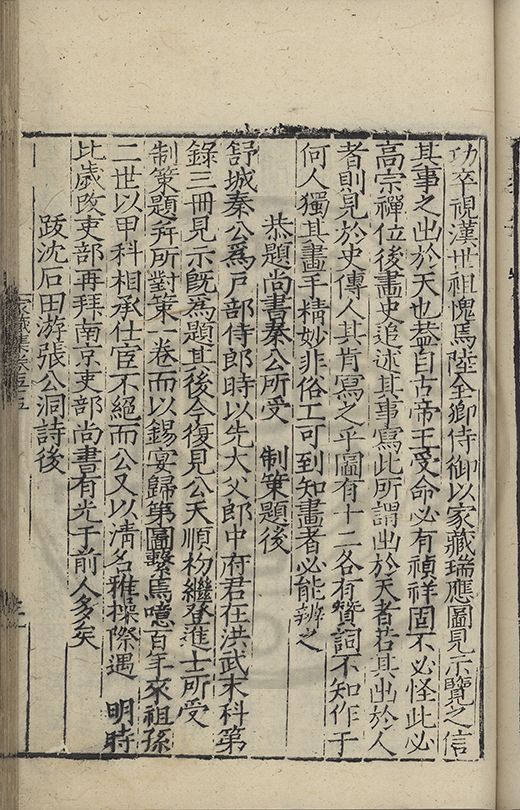 功卒視漢世祖愧焉陸全卿侍御以家藏瑞應圖見示覽之信
其事之出於天也蓋自古帝王受命必有禎祥固不必怪此必
高宗禪位後畫史追述其事寫此所謂出於天者若其出於人
者則見於史傳人其肯寫之乎圖有十二各有贊詞不知作于
何人獨其畫手精妙非俗工可到知畫者必能辨之
恭題尚書秦公所受　制策題後
舒城秦公爲戶部侍郎時以先大父郎中府君在洪武末科第
錄三冊見示旣爲題其後今復見公天順初繼登進士所受
制策題并所對策一卷而以錫宴歸第圖繫焉噫百年來祖孫
二世以甲科相承仕宦不絕而公又以淸名雅操際遇　明時
比歲改吏部再拜南京吏部尚書有光于前人多矣
跋沈石田游張公洞詩後
家藏集卷五十五